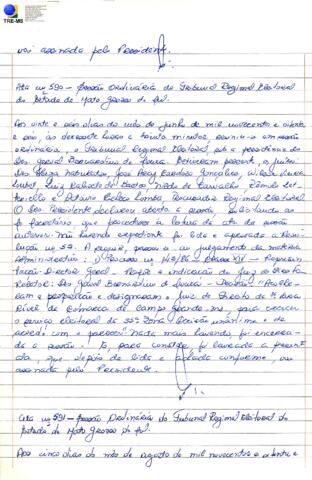 TRE-MS
vai assinada pelo Presidente.
Ata nº 590 - Sessão Ordinária do Tribunal Regional Eleitoral
do Estado de Mato Grosso do Sul.
Aos vinte e seis dias do mês de junho de mil novecentos e oitenta
e seis, às dezessete horas e trinta minutos, reuniu-se em sessão
ordinária, o Tribunal Regional Eleitoral, sob a presidência do
Des. Gerval Bernardino de Souza. Estiveram presentes, os juízes
Des. José Nery
Leal, Luiz de Carvalho
e Otávio Barbosa Pereira, Procurador Regional Eleitoral.
O Des. Presidente declarou aberta a sessão, solicitando ao
Sr. Secretário que procedesse a leitura da ata da sessão
anterior. Não havendo expediente foi lida e aprovada a Reso-
lução nº 59. A seguir, passou-se ao julgamento da matéria
Administrativa: 1) Processo nº Classe XIV - Represen-
tação - Diretor Geral. indicação de Juiz de Direito.
Relator: Des. Gerval Bernardino de Souza - Decisão: "Acolhe-
ram a proposição e designaram o Juiz de Direito da Vara
Cível da Comarca de Campo Grande-MS, para exercer
o serviço eleitoral da 35ª Zona. Decisão unânime e de
acordo com o parecer." Nada mais havendo, foi encerra-
da a sessão. E, para constar foi lavrada a presente
ata, que depois de lida e achada conforme, vai
assinada pelo Presidente.
Ata nº 591 - Sessão Ordinária do Tribunal Regional Eleitoral do
Estado de Mato Grosso do Sul.
Aos cinco dias do mês de agosto de mil novecentos e oitenta e